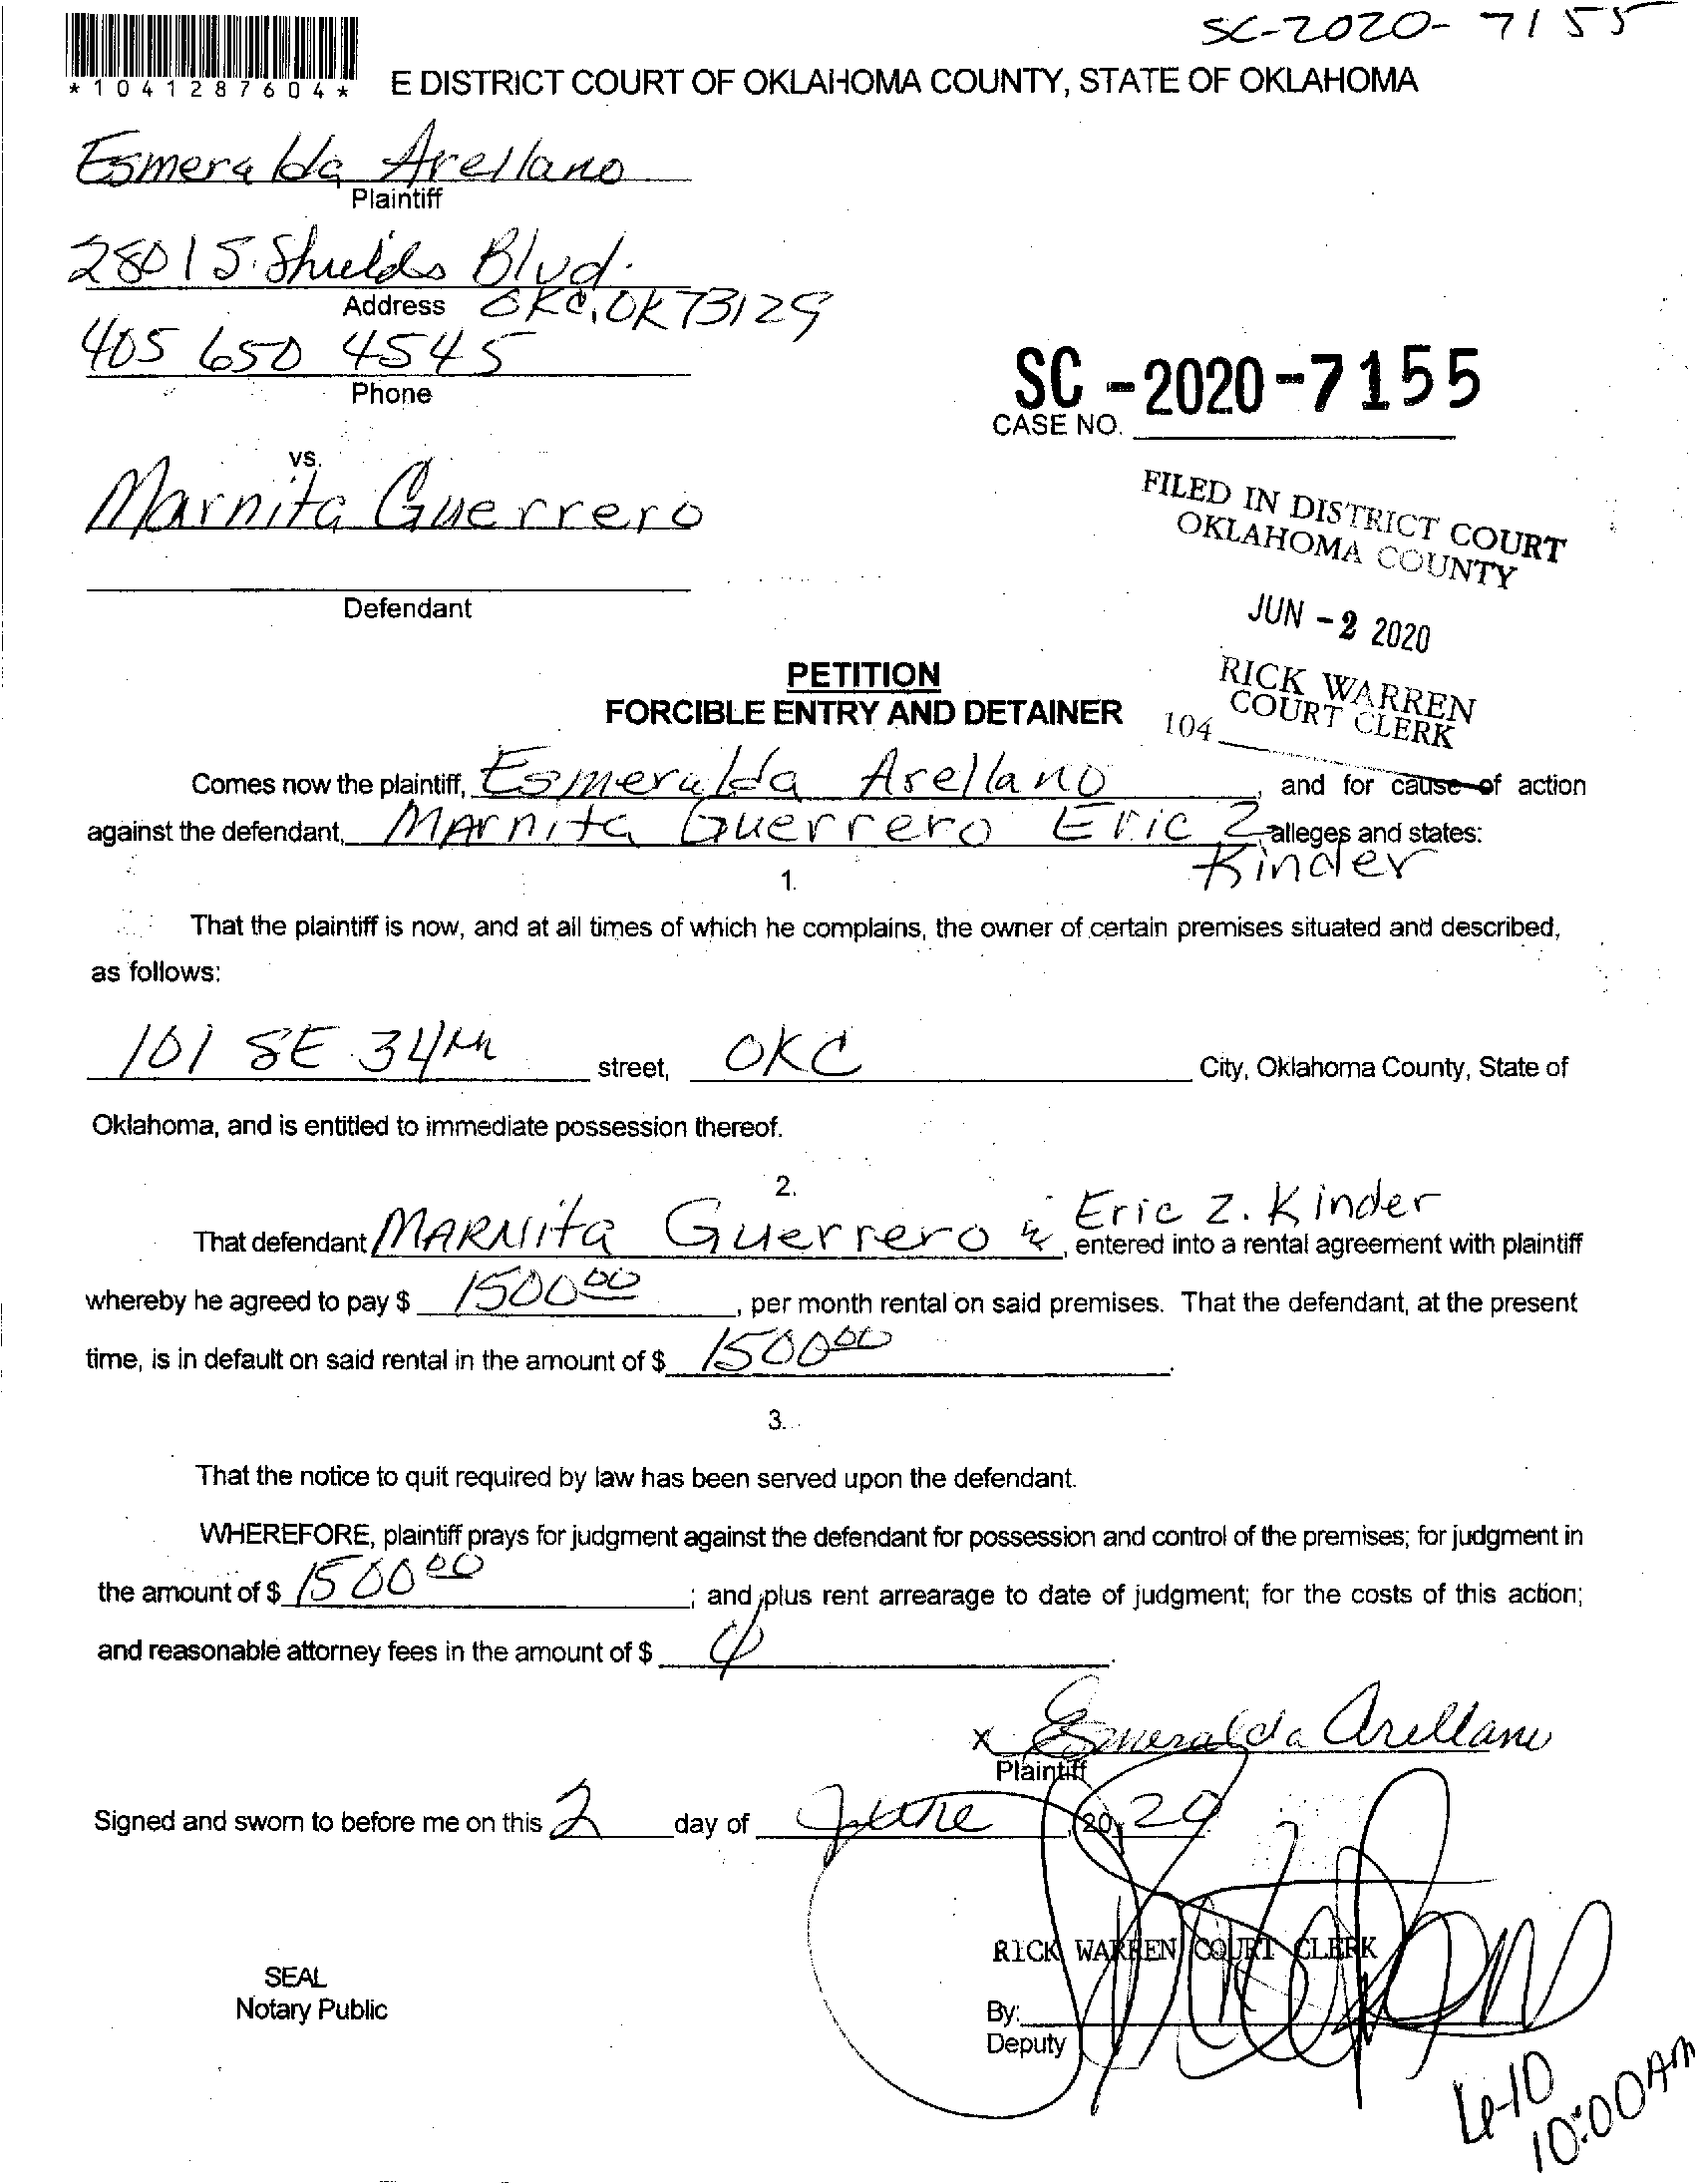 SC-2020-7155
*1041287604*
E DISTRICT COURT OF OKLAHOMA COUNTY, STATE OF OKLAHOMA
Esmeralda Arellano
Plaintiff
2801 S. Shields Blvd.
Address OKC, OK 73129
405 650 4545
Phone
SC-2020-7155
CASE NO.
vs.
Marnita Guerrero
Defendant
FILED IN DISTRICT COURT
OKLAHOMA COUNTY
JUN -2 2020
RICK WARREN
COURT CLERK
104
PETITION
FORCIBLE ENTRY AND DETAINER
Comes now the plaintiff, Esmeralda Arellano, and for cause of action
against the defendant, Marnita Guerrero Eric Z alleges and states:
Kinder
1.
That the plaintiff is now, and at all times of which he complains, the owner of certain premises situated and described,
as follows:
101 SE 34th street, OKC City, Oklahoma County, State of
Oklahoma, and is entitled to immediate possession thereof.
2.
Eric Z. Kinder
That defendant MARNita Guerrero &, entered into a rental agreement with plaintiff
whereby he agreed to pay $ 1500 00, per month rental on said premises. That the defendant, at the present
time, is in default on said rental in the amount of $ 1500 00.
3.
That the notice to quit required by law has been served upon the defendant.
WHEREFORE, plaintiff prays for judgment against the defendant for possession and control of the premises; for judgment in
the amount of $ 1500 00; and plus rent arrearage to date of judgment; for the costs of this action;
and reasonable attorney fees in the amount of $
x Esmeralda Arellano
Plaintiff
Signed and sworn to before me on this 2 day of June, 2020.
RICK WARREN COURT CLERK
SEAL
Notary Public
By:
Deputy
6-10
10:00AM